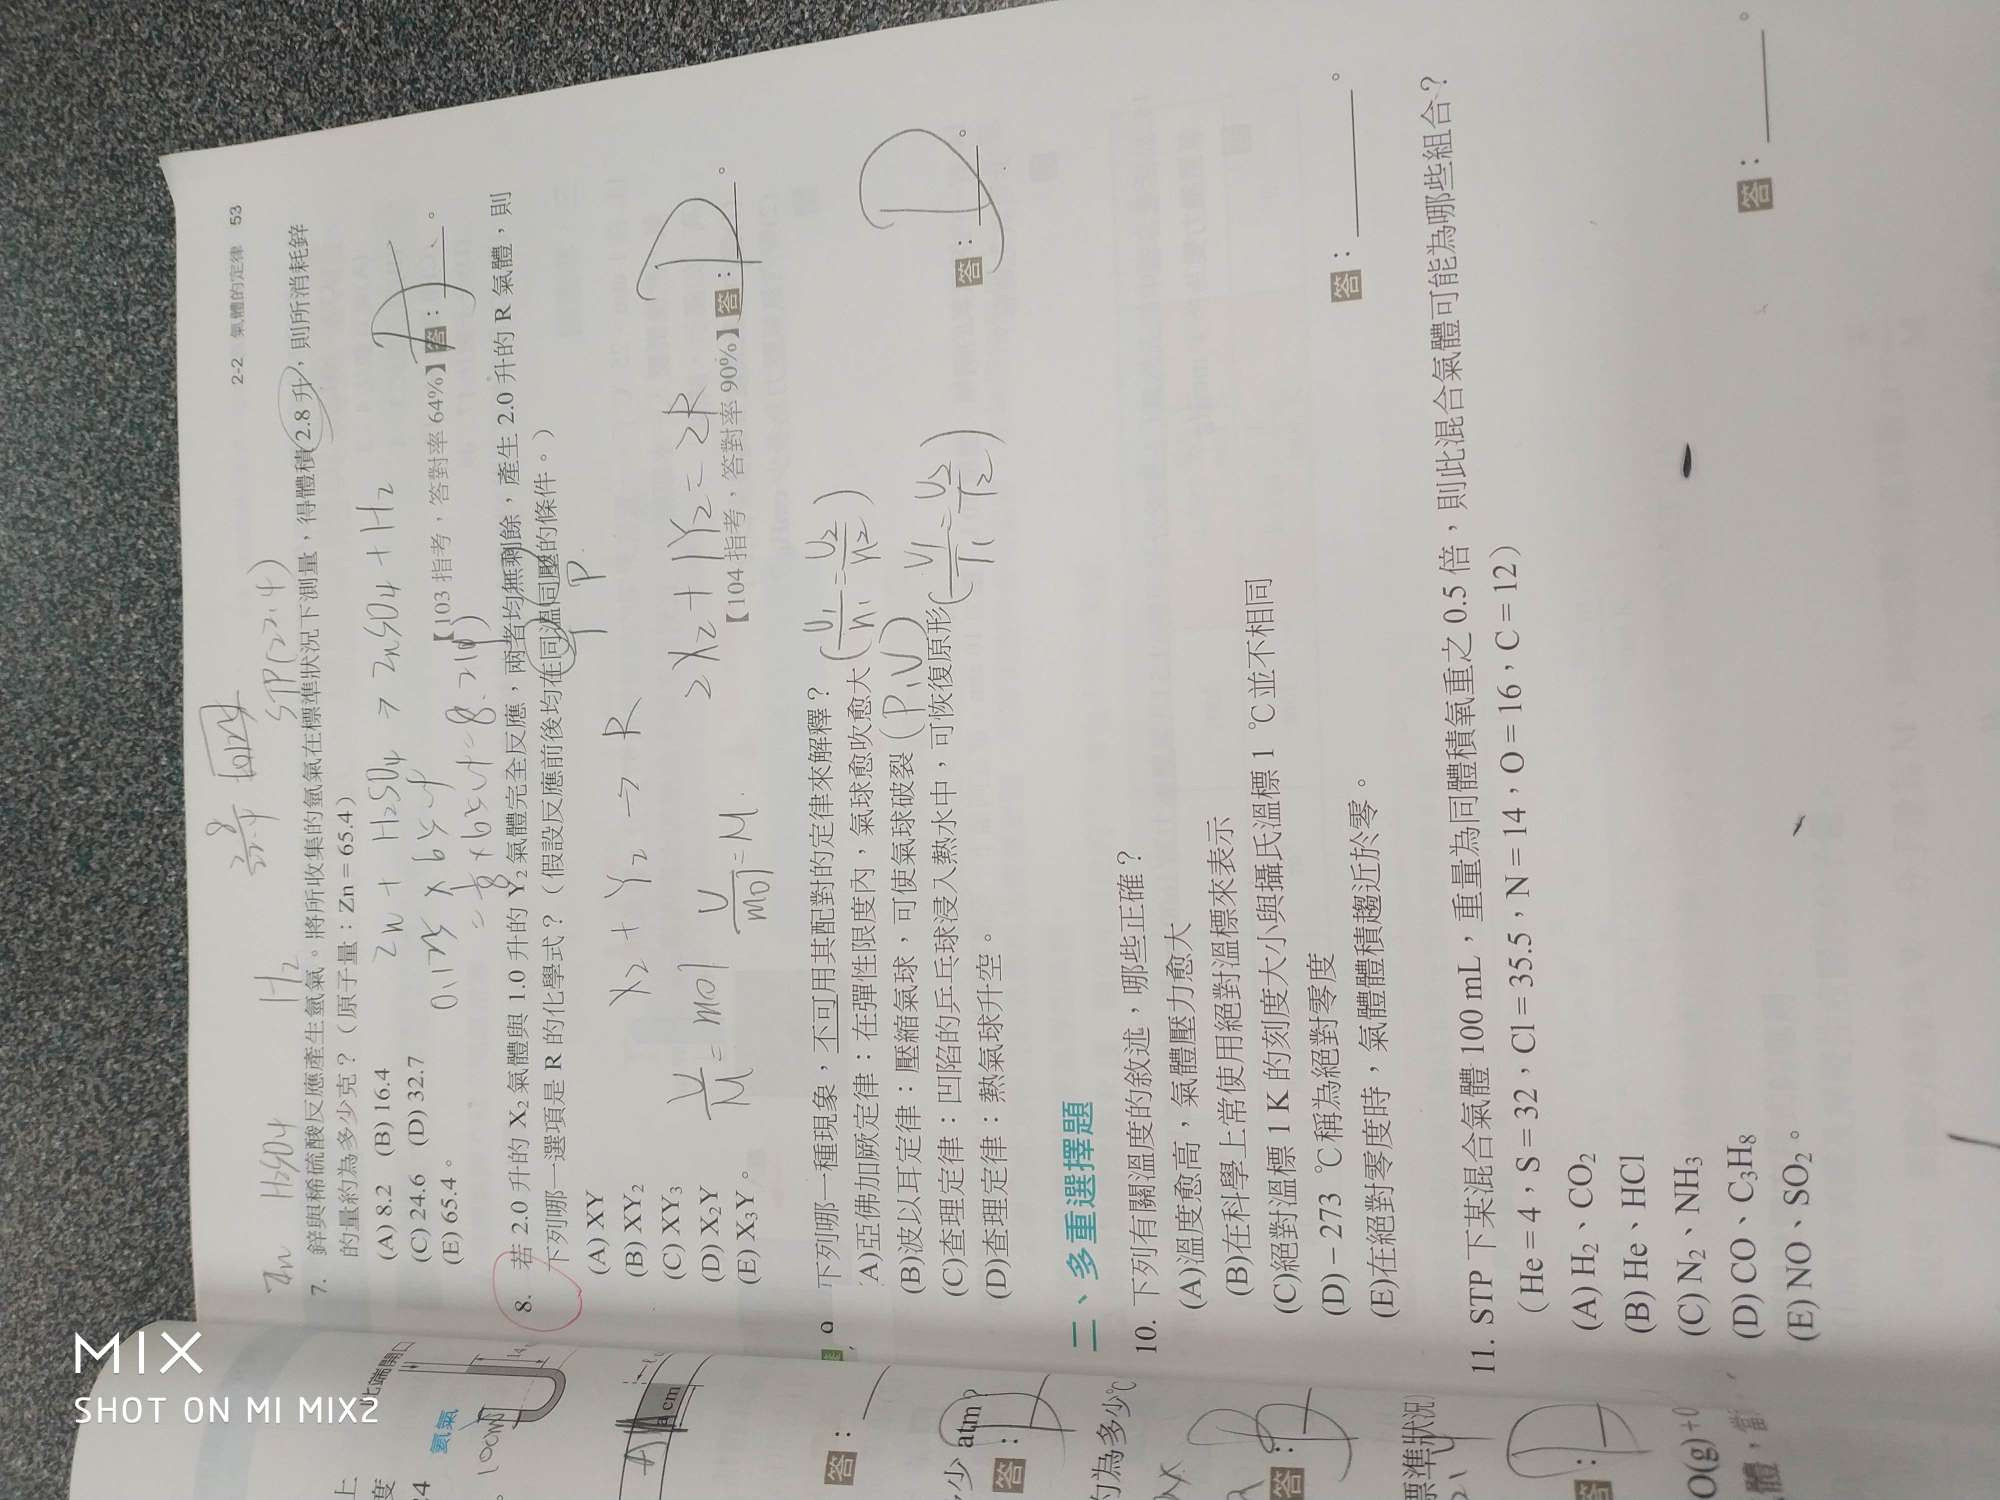 2-2 氣體的定律 53
Zn H2SO4 H2
STP(22.4)
7. 鋅與稀硫酸反應產生氫氣。將所收集的氫氣在標準狀況下測量，得體積 2.8 升，則所消耗鋅
的量約為多少克？（原子量：Zn = 65.4）
(A) 8.2 (B) 16.4
(C) 24.6 (D) 32.7
(E) 65.4。
Zn + H2SO4 → ZnSO4 + H2
【103 指考，答對率 64%】答：A。
8. 若 2.0 升的 X2 氣體與 1.0 升的 Y2 氣體完全反應，兩者均無剩餘，產生 2.0 升的 R 氣體，則
下列哪一選項是 R 的化學式？（假設反應前後均在同溫同壓的條件。）
T P
(A) XY
(B) XY2
(C) XY3
(D) X2Y
(E) X3Y。
X2 + Y2 → R
2X2 + 1Y2 = 2R
【104 指考，答對率 90%】答：D。
9 下列哪一種現象，不可用其配對的定律來解釋？
(A)亞佛加厥定律：在彈性限度內，氣球愈吹愈大
(B)波以耳定律：壓縮氣球，可使氣球破裂 (P1V)
(C)查理定律：凹陷的乒乓球浸入熱水中，可恢復原形
(D)查理定律：熱氣球升空。
答：D。
二、多重選擇題
10. 下列有關溫度的敘述，哪些正確？
(A)溫度愈高，氣體壓力愈大
(B)在科學上常使用絕對溫標來表示
(C)絕對溫標 1 K 的刻度大小與攝氏溫標 1 ℃並不相同
(D)－273 ℃稱為絕對零度
(E)在絕對零度時，氣體體積趨近於零。
答：。
11. STP 下某混合氣體 100 mL，重量為同體積氧重之 0.5 倍，則此混合氣體可能為哪些組合？
（He = 4，S = 32，Cl = 35.5，N = 14，O = 16，C = 12）
(A) H2、CO2
(B) He、HCl
(C) N2、NH3
(D) CO、C3H8
(E) NO、SO2。
答：。
此端開口
氨氣
100cm
a cm
答：
少 atm？
答：
約為多少℃
答：
標準狀況
答：
O(g)
MIX
SHOT ON MI MIX2